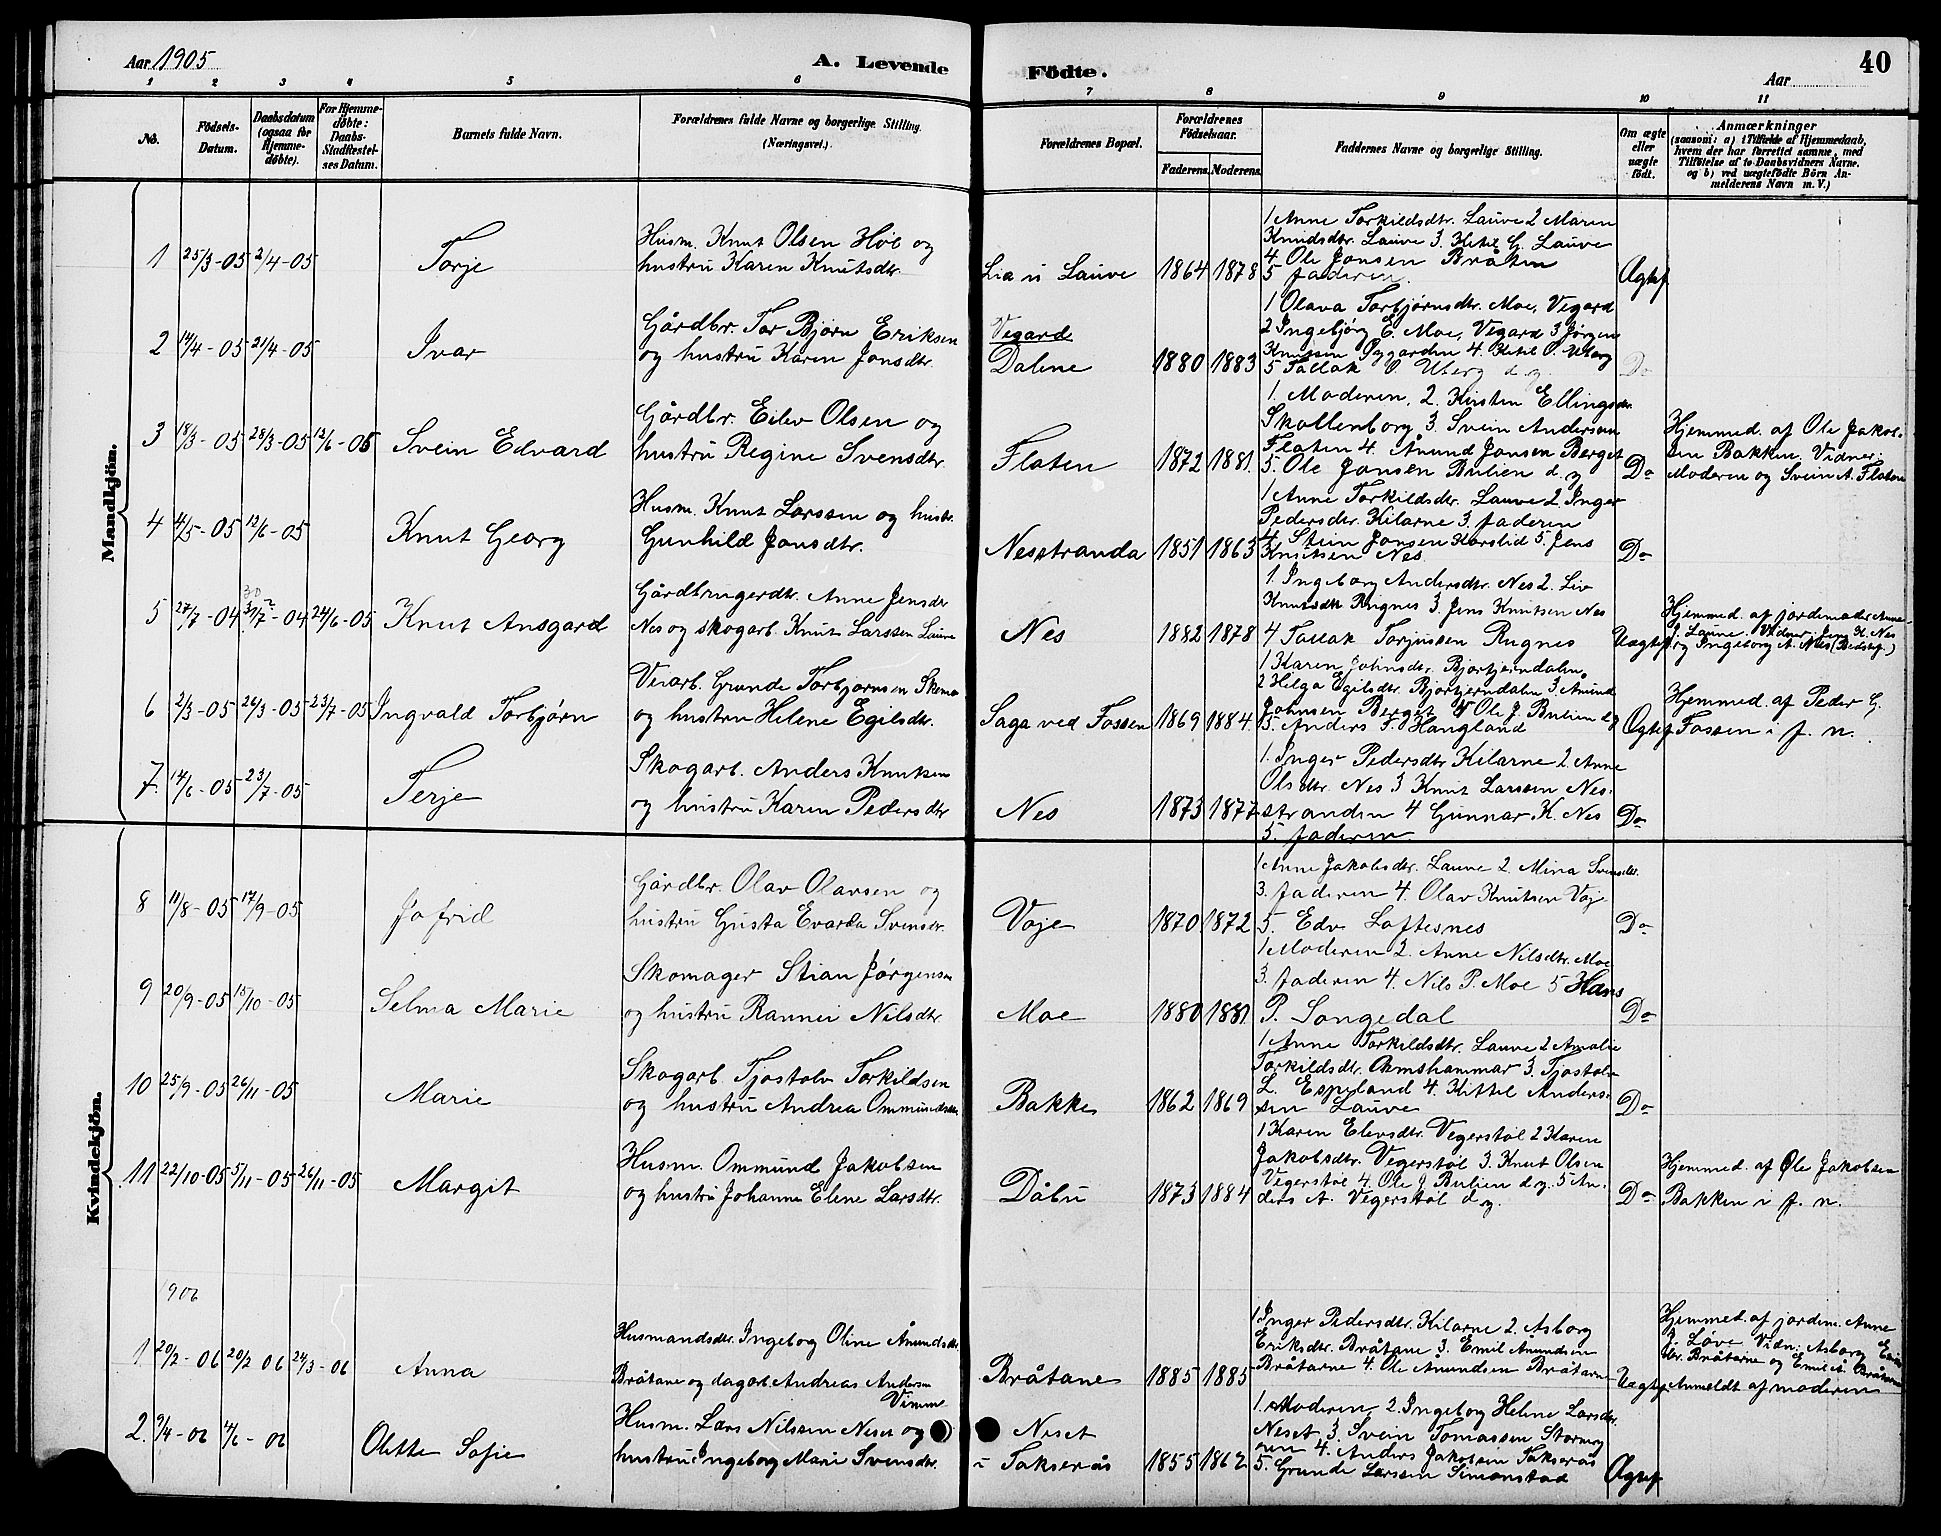 Aar 1905
A. Levende Födte.
Aar
40
1 2 3 4 5 6 7 8 9 10 11
No.
Födsels-Datum.
Daabsdatum (ogsaa for Hjemme-döbte).
For Hjemme-döbte: Daabs-Stadfæstel-ses Datum.
Barnets fulde Navn.
Forældrenes fulde Navne og borgerlige Stilling. (Næringsvei.)
Forældrenes Bopæl.
Forældrenes Födselsaar.
Faderens. Moderens.
Faddernes Navne og borgerlige Stilling.
Om ægte eller uægte födt.
Anmærkninger
(saasom: a) i Tilfælde af Hjemmedaab,
hvem der har forrettet samme, med
Tilföielse af to Daabsvidners Navne.
og b) ved uægtefödte Börn An-
melderens Navn m. V.)
Mandkjön.
1 25/3-05 2/4-05 Torje
Husm. Knut Olsen Hol og
hustru Karen Knutsdtr.
Lia u Lauve 1864 1878
1 Anne Torkildsdtr. Lauve 2 Maren
Knudsdtr. Lauve 3. Ketil G. Lauve
4. Ole Jonsen Bråten
5 faderen.
Ægtef
2 14/4-05 21/4-05 Ivar
Gårdbr. Tor Bjørn Eriksen
og hustru Karen Jonsdtr.
Vegard
Dalene 1880 1883
1 Olava Torbjørnsdtr. Moe, Vegard
2 Ingebjørg E. Moe, Vegard 3 Jørgen
Knutsen Nygarden 4. Ketil O. Uberg
5 Tallak O. Uberg d.y.
Do
3 18/3-05 28/3-05 12/6-05 Svein Edvard
Gårdbr. Eilev Olsen og
hustru Regine Svensdtr.
Flaten 1872 1881.
1. Moderen, 2. Kirsten Ellingsdtr.
Skollenborg 3. Svein Andersen
Flaten 4. Ånund Jonsen Berget
5. Ole Jonsen Bulien d. y
Do
Hjemmed. af Ole Jakob-
sen Bakken. Vidner:
Moderen og Svein A. Flaten
4 4/5-05 12/6-05 Knut Georg
Husm. Knut Larssen og hustr.
Gunhild Jonsdtr.
Nesstranda 1851 1863
1 Anne Torkildsdtr. Lauve 2 Inger
Pedersdtr. Kilarne 3. faderen
4. Stein Jonsen Harslid 5. Jens
Knutsen Nes
Do
5 27/7-04 30 31/7-04 24/6-05 Knut Ansgard
Gårdbrugerdtr. Anne Jensdtr
Nes og skogarb. Knut Larssen Lauve
Nes 1882 1878
1. Ingeborg Andersdtr. Nes 2. Liv
Knutsdtr Rugnes 3. Jens Knutsen Nes
4 Tallak Torjussen Rugnes
Uægtef
Hjemmed. af jordemoder Anne
J. Lauve. Vidner: Jens K. Nes
og Ingeborg A. Nes (Bedstef.)
6 2/3-05 26/3-05 23/7-05 Ingvald Torbjørn
Veiarb. Grunde Torbjørnsen Skomo
og hustru Helene Egilsdtr.
Saga ved Fossen 1869 1884.
1 Karen Johnsdtr. Bjortjerndalen
2 Helga Egilsdtr. Bjortjerndalen 3. Ånund
Johnsen Berget 4 Ole J. Bulien d.y
5. Anders T. Haugland
Ægtef
Hjemmed. af Peder G.
Fossen i f. n.
7. 14/6-05 23/7-05 Terje
Skogarb. Anders Knutsen
og hustru Karen Pedersdtr
Nes 1873 1877
1. Inger Pedersdtr Kilarne 2 Anne
Olsdtr. Nes 3 Knut Larssen Nes-
stranden 4 Gunnar K. Nes
5. faderen
Do
Kvindekjön.
8 11/8-05 17/9-05 Jofrid
Gårdbr. Olav Olavsen og
hustru Gusta Evarda Svensdtr.
Voje 1870 1872
1 Anne Jakobsdtr. Lauve 2. Mina Svensdtr.
3. faderen 4. Olav Knutsen Voje
5. Edv Loftesnes
Do
9 20/9-05 15/10-05 Selma Marie
Skomager Stian Jørgensen
og hustru Rannei Nilsdtr
Moe 1880 1881
1 Moderen 2. Anne Nilsdtr. Moe
3. faderen 4. Nils P. Moe 5 Hans
P. Songedal
Do
10 25/9-05 26/11-05 Marie
Skogarb. Tjostolv Torkildsen
og hustru Andrea Ommundsdtr.
Bakke 1862 1869
1 Anne Torkildsdtr. Lauve 2 Amalie
Torkildsdtr. Ormshammar 3. Tjostolv
L. Espeland 4. Kittel Anders-
sen Lauve
Do
11 22/10-05 5/11-05 26/11-05 Margit
Husm. Ommund Jakobsen
og hustru Johanne Elene Larsdtr.
Dåbu 1873 1884
1 Karen Elevsdtr. Vegerstøl 2 Karen
Jakobsdtr. Vegerstøl 3. Knut Olsen
Vegerstøl 4. Ole J Bulien d.y. 5 An-
ders A. Vegerstøl d.y.
Do
Hjemmed. af Ole Jakobsen
Bakken i f. n.
1906
1. 20/2-06 20/2 06 24/3-06 Anna
Husmandsdtr. Ingeborg Oline Ånundsdtr
Bråtane og dagarb. Andreas Andersen
Vimme
Bråtane 1885 1885
1 Inger Pedersdtr. Kilarne 2. Asborg
Eriksdtr. Bråtane 3. Emil Ånundsen
Bråtarne 4. Ole Ånundsen Bråtarne
Uægtef
Hjemmed. af jordem. Anne
J. Løve. Vidn. Asborg Eriks
dtr. Bråtarne og Emil Å. Bråtarne
Anmeldt af moderen
2. 9/4-06 4/6-06 Olette Sofie
Husm. Lars Nilssen Neset og
hustru Ingeborg Marie Svensdtr.
Neset
i Takserås 1855 1862
1. Moderen 2. Ingeborg Helene Larsdtr.
Neset 3. Svein Tomassen Stormyr
en 4. Anders Jakobsen Takserås
5. Grunde Larssen Simonstad
Ægtef